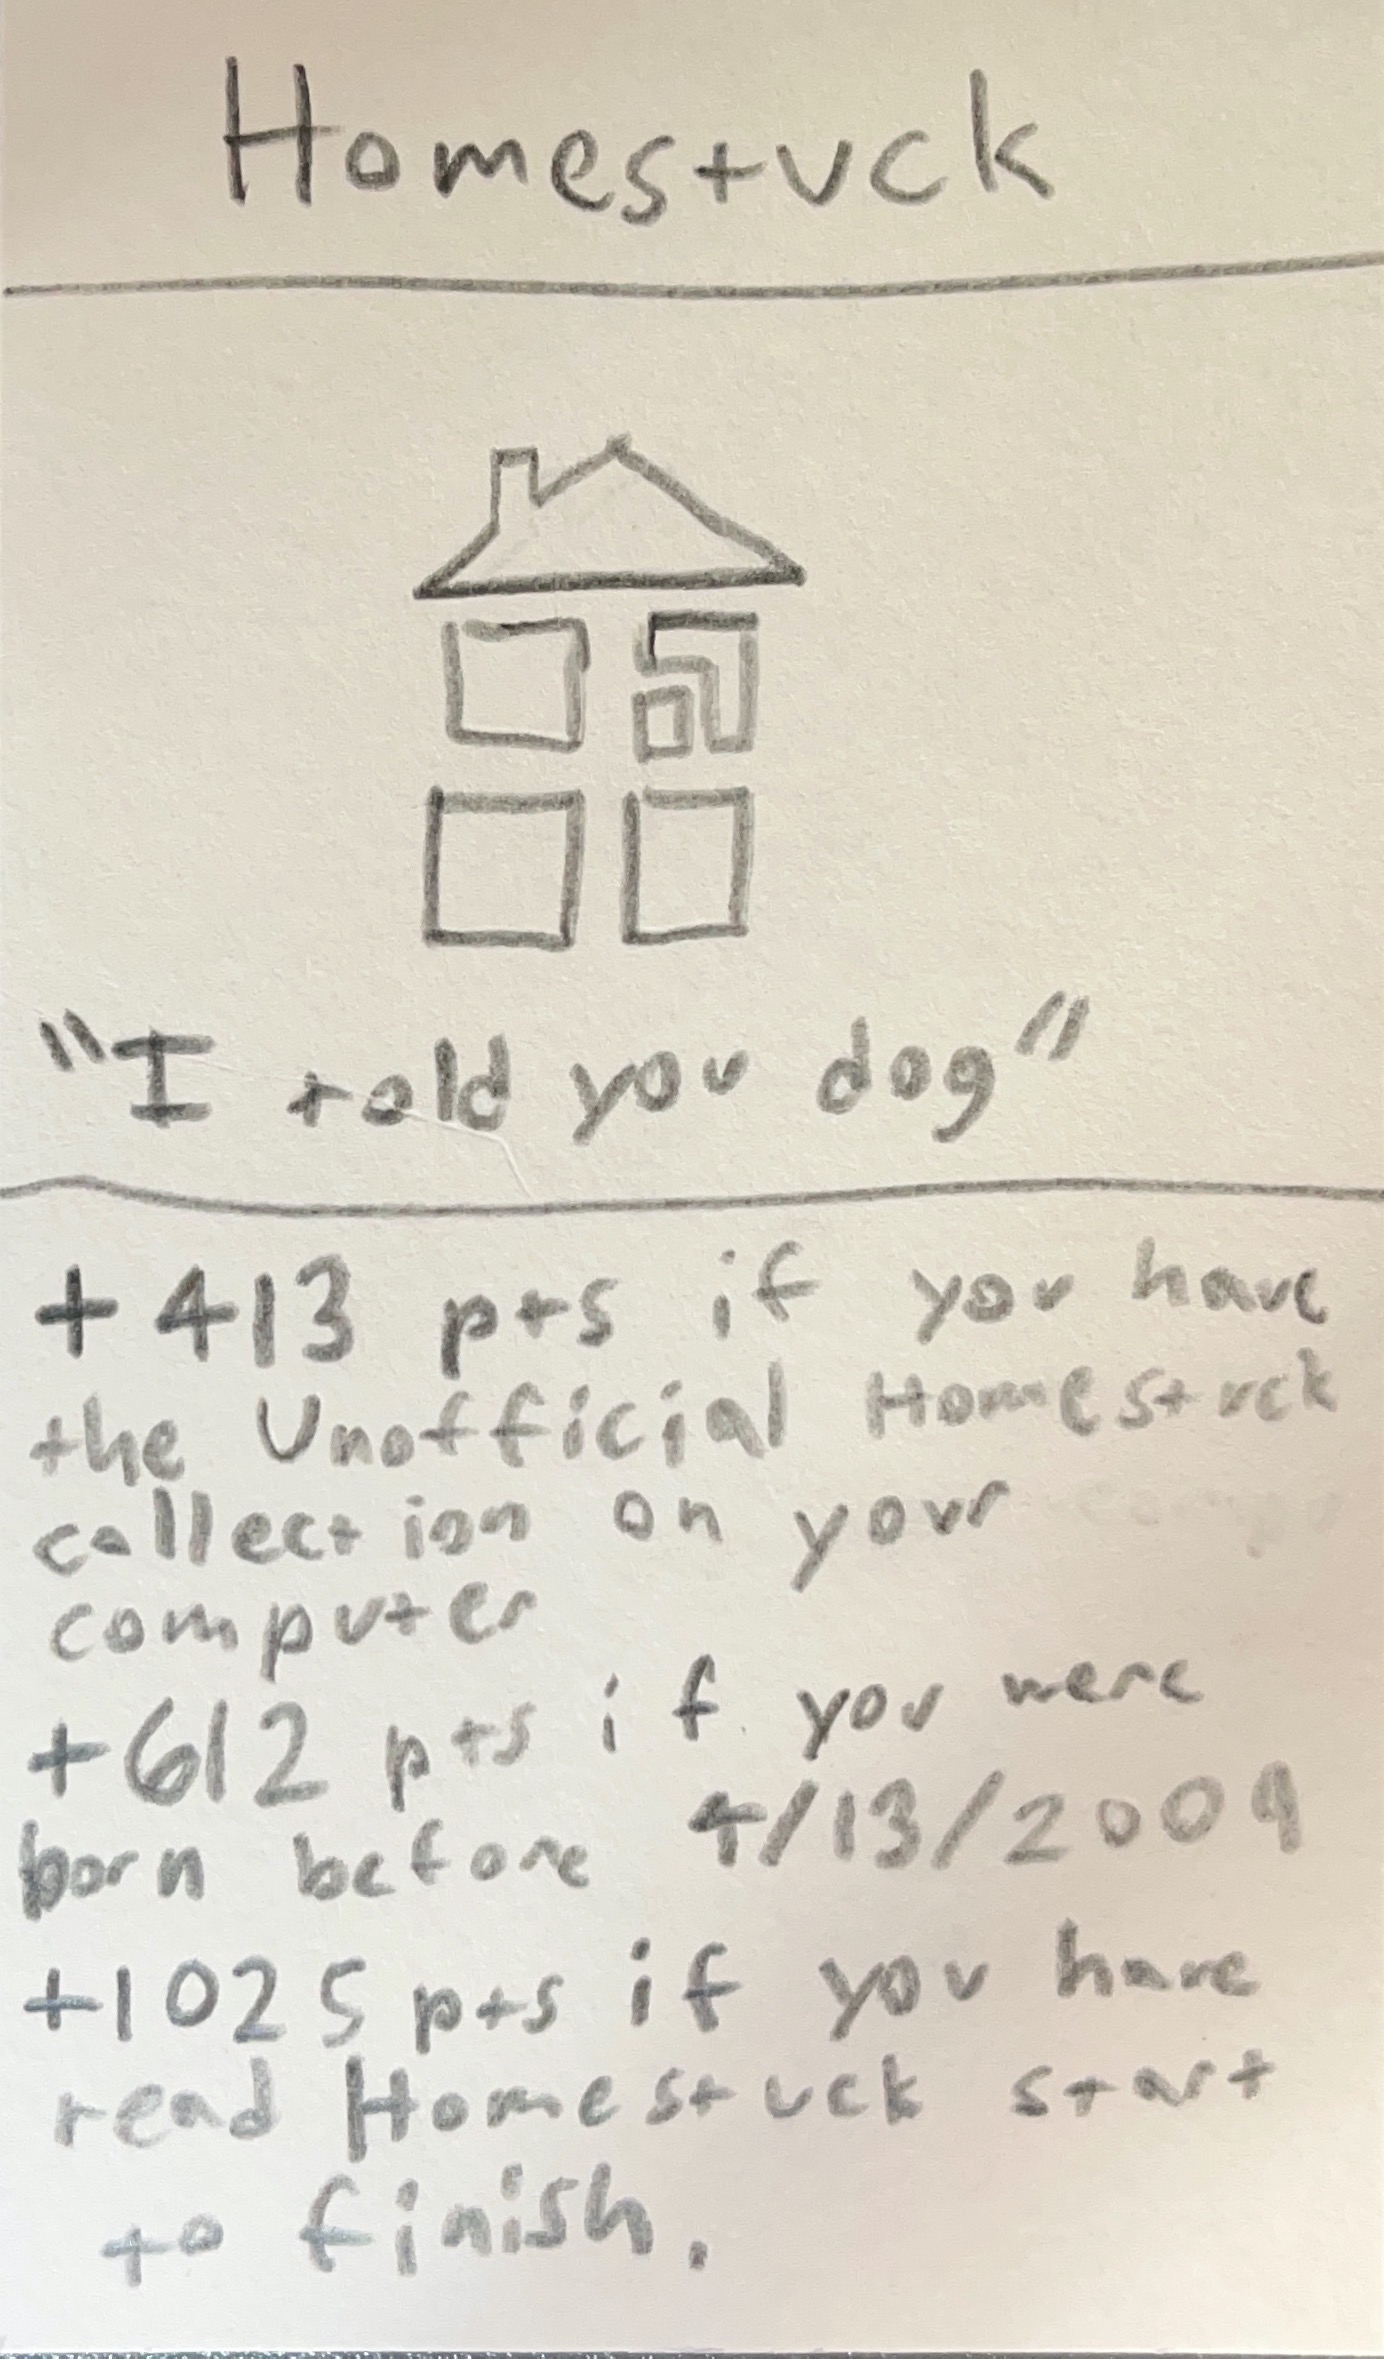 Homestuck
"I told you dog"
+413 pts if you have
the Unofficial Homestuck
collection on your compu
computer
+612 pts if you were
born before 4/13/2009
+1025 pts if you have
read Homestuck start
to finish.